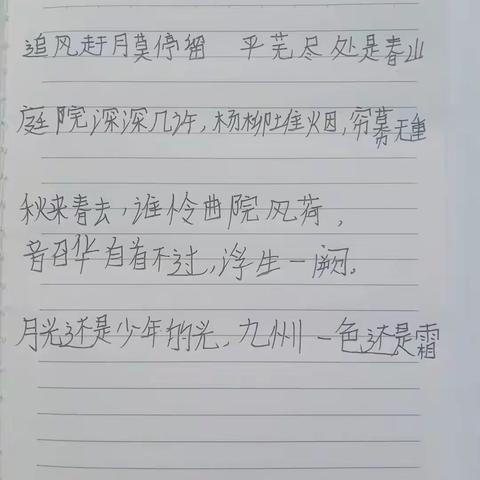 追风赶月莫停留 平芜尽处是春山
庭院深深几许,杨柳堆烟,穷幕无重
秋来春去,谁怜曲院风荷,
韶华自看不过,浮生一阙。
月光还是少年的光,九州一色还是霜